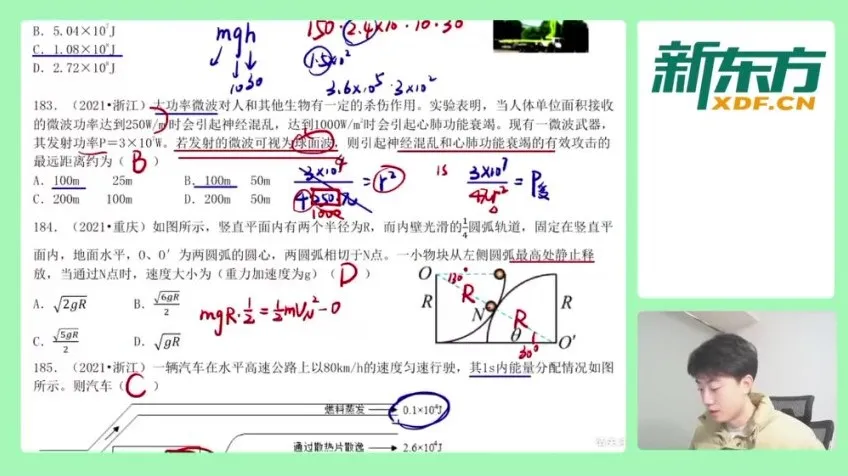 B. 5.04×10⁷J
C. 1.08×10⁸J
D. 2.72×10⁸J
mgh
10 30
150·2.4×10·10·30
1.5×10²
3.6×10⁵·3×10²
新东方
XDF.CN
183. (2021•浙江) 大功率微波对人和其他生物有一定的杀伤作用。实验表明，当人体单位面积接收
的微波功率达到250W/m²时会引起神经混乱，达到1000W/m²时会引起心肺功能衰竭。现有一微波武器，
其发射功率P＝3×10⁷W。若发射的微波可视为球面波，则引起神经混乱和心肺功能衰竭的有效攻击的
最远距离约为( B )
A. 100m 25m
B. 100m 50m
C. 200m 100m
D. 200m 50m
3×10⁷ 4
4 250 π = r²
1000
1s 3×10⁷/4πr² = P受
184. (2021•重庆) 如图所示，竖直平面内有两个半径为R，而内壁光滑的1/4圆弧轨道，固定在竖直平
面内，地面水平，O、O′为两圆弧的圆心，两圆弧相切于N点。一小物块从左侧圆弧最高处静止释
放，当通过N点时，速度大小为（重力加速度为g）( D )
A. √2gR
B. √6gR/2
C. √5gR/2
D. √gR
mgR·1/2=1/2mV_N²-0
O 30° R R N R R θ O′ 30°
185. (2021•浙江) 一辆汽车在水平高速公路上以80km/h的速度匀速行驶，其1s内能量分配情况如图
所示。则汽车( C )
燃料蒸发 0.1×10⁴J
通过散热片散逸 2.6×10⁴J